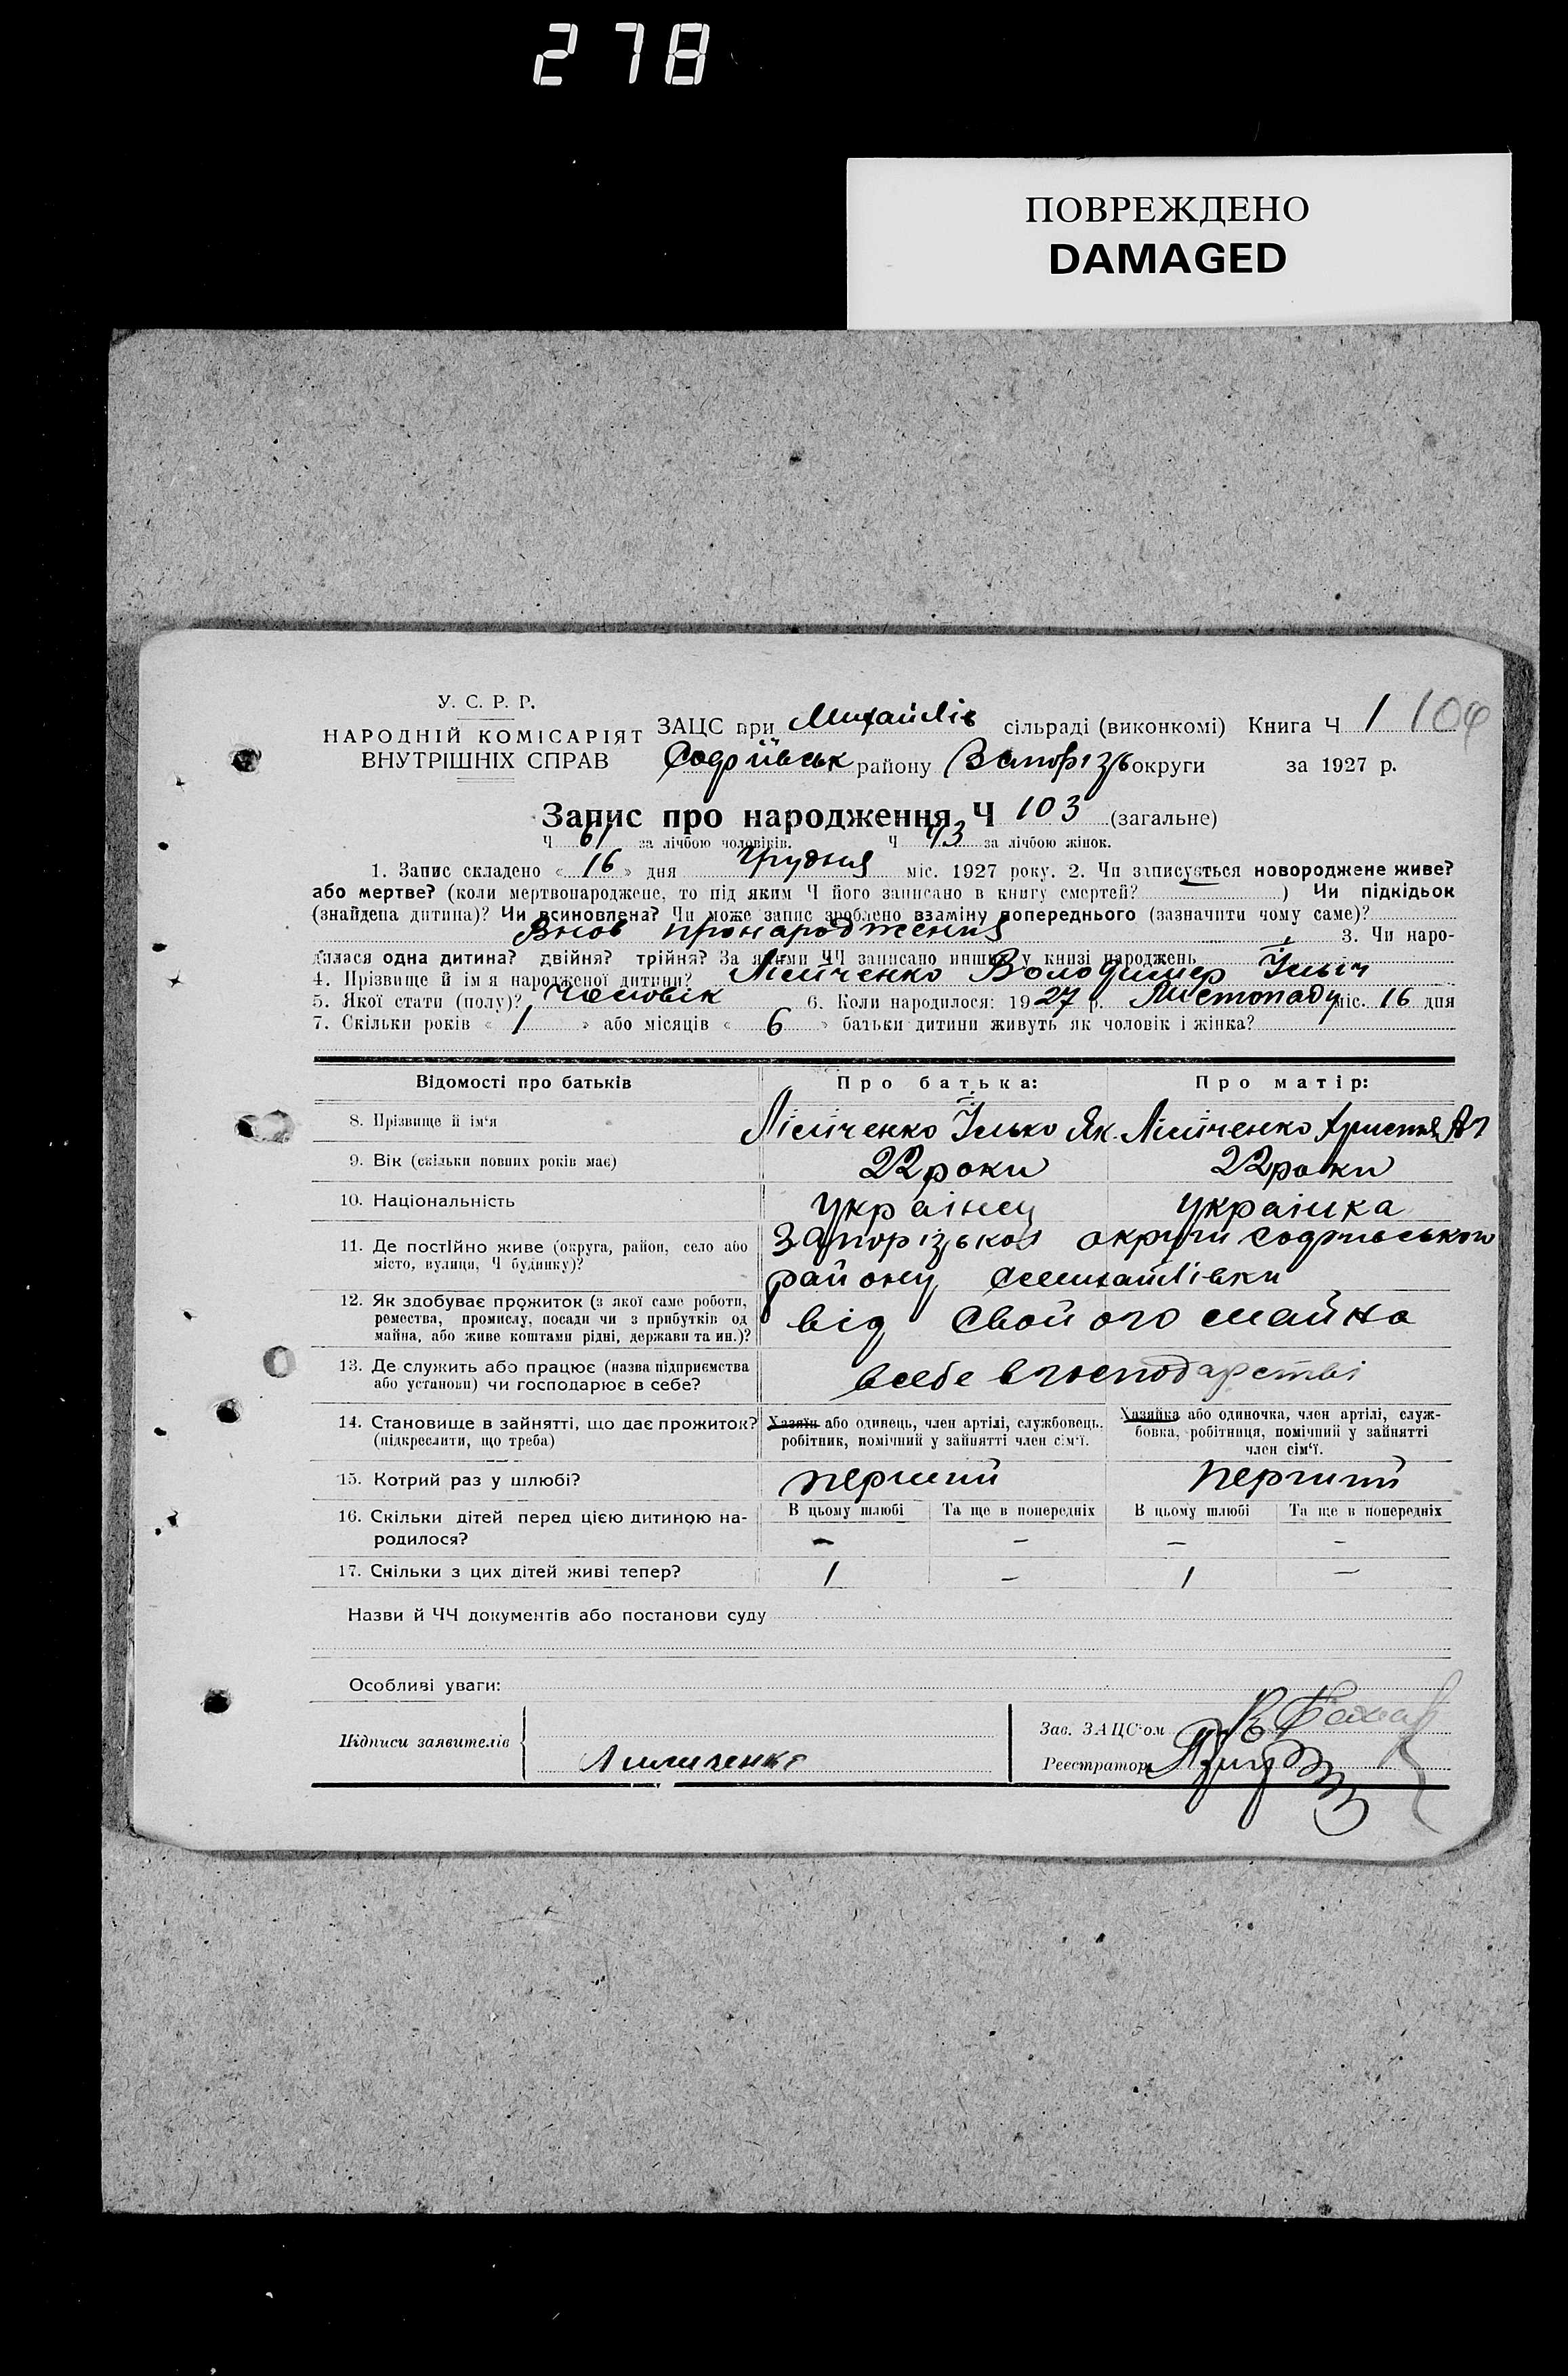 278
ПОВРЕЖДЕНО
DAMAGED
У. С. Р. Р.
НАРОДНІЙ КОМІСАРІЯТ
ВНУТРІШНІХ СПРАВ
ЗАЦС при Михайлів сільраді (виконкомі) Книга Ч 1 104
Софіївськ району Запорізь округи за 1927 р.
Запис про народження Ч 103 (загальне)
Ч 61 за лічбою чоловіків. Ч 43 за лічбою жінок.
1. Запис складено « 16 » дня Грудня міс. 1927 року. 2. Чи записується новороджене живе?
або мертве? (коли мертвонароджене, то під яким Ч його записано в книгу смертей? ) Чи підкідьок
(знайдена дитина)? Чи всиновлена? Чи може запис зроблено взаміну попереднього (зазначити чому саме)?
Внов пронародження 3. Чи наро-
дилася одна дитина? двійня? трійня? За якими ЧЧ записано инших у книзі народжень
4. Прізвище й ім'я народженої дитини? Лісіченко Володимер Ільіч
5. Якої стати (полу)? Чоловік 6. Коли народилося: 1927 р. Листопаду міс. 16 дня
7. Скільки років « 1 » або місяців « 6 » батьки дитини живуть як чоловік і жінка?
Відомості про батьків Про батька: Про матір:
8. Прізвище й ім'я Лісіченко Ілько Як. Лісіченко Христя
9. Вік (скільки повних років має) 22 роки 22 роки
10. Національність українец українка
11. Де постійно живе (округа, район, село або Запорізької округи Софиівськои
місто, вулиця, Ч будинку)? району Михайлівки
12. Як здобуває прожиток (з якої саме роботи,
ремества, промислу, посади чи з прибутків од від свойого майна
майна, або живе коштами рідні, держави та ин.)?
13. Де служить або працює (назва підприємства всебе вгосподарстві
або установи) чи господарює в себе?
14. Становище в зайнятті, що дає прожиток? Хазяїн або одинець, член артілі, службовець, Хазяйка або одиночка, член артілі, служ-
(підкреслити, що треба) робітник, помічний у зайнятті член сім'ї. бовка, робітниця, помічний у зайнятті
член сім'ї.
15. Котрий раз у шлюбі? перший перший
16. Скільки дітей перед цією дитиною на- В цьому шлюбі Та ще в попередніх В цьому шлюбі Та ще в попередніх
родилося? – – – –
17. Скільки з цих дітей живі тепер? 1 – 1 –
Назви й ЧЧ документів або постанови суду
Особливі уваги:
Підписи заявителів Зав. ЗАЦС'ом
Реєстратор